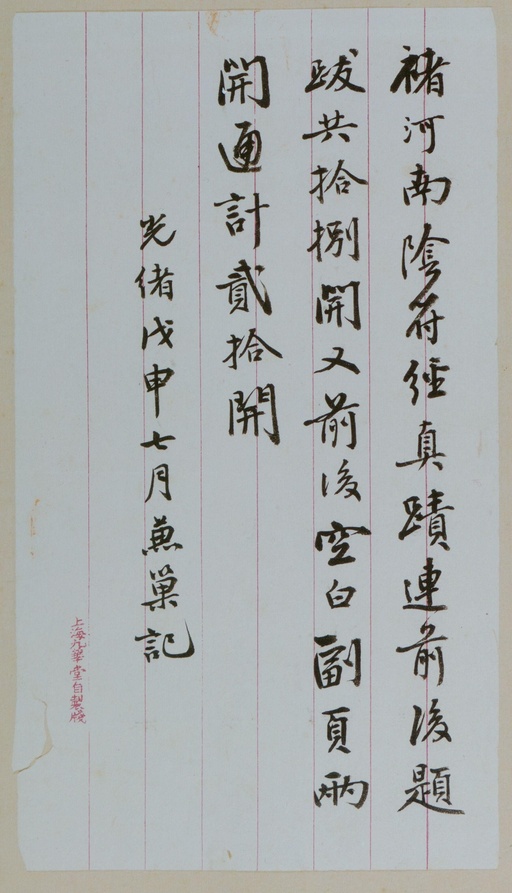 褚河南陰符經真蹟連前後題
跋共拾捌開又前後空白副頁兩
開通計貳拾開
光緒戊申七月蒹巢記
上海九華堂自製牋